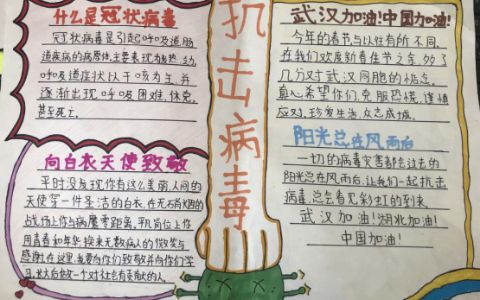 什么是冠状病毒
冠状病毒是引起呼吸道肠
道疾病的病原体,主要表现为发热、乏力
呼吸道症状以干咳为主,并
逐渐出现呼吸困难、休克,
甚至死亡。
向白衣天使致敬
平时没发现你有这么美丽,人间的
天使穿一件圣洁的白衣,在无硝烟的
战场上你与病魔零距离,平凡岗位上你
用青春和年华换来无数病人的微笑与
感谢,在这里,我要向你们致敬并向你们学
习,长大后做一个对社会有贡献的人。
抗击病毒
武汉加油!中国加油!
今年的春节与以往有所不同,
在我们欢度新春佳节之余,多了
几分对武汉同胞的惦念。
真心希望你们,克服恐慌,谨慎
应对,珍爱生活,众志成城。
阳光总在风雨后
一切的病毒灾害都会过去的
阳光总在风雨后,让我们一起抗击
病毒,总会看见彩虹的到来
武汉加油!湖北加油!
中国加油!